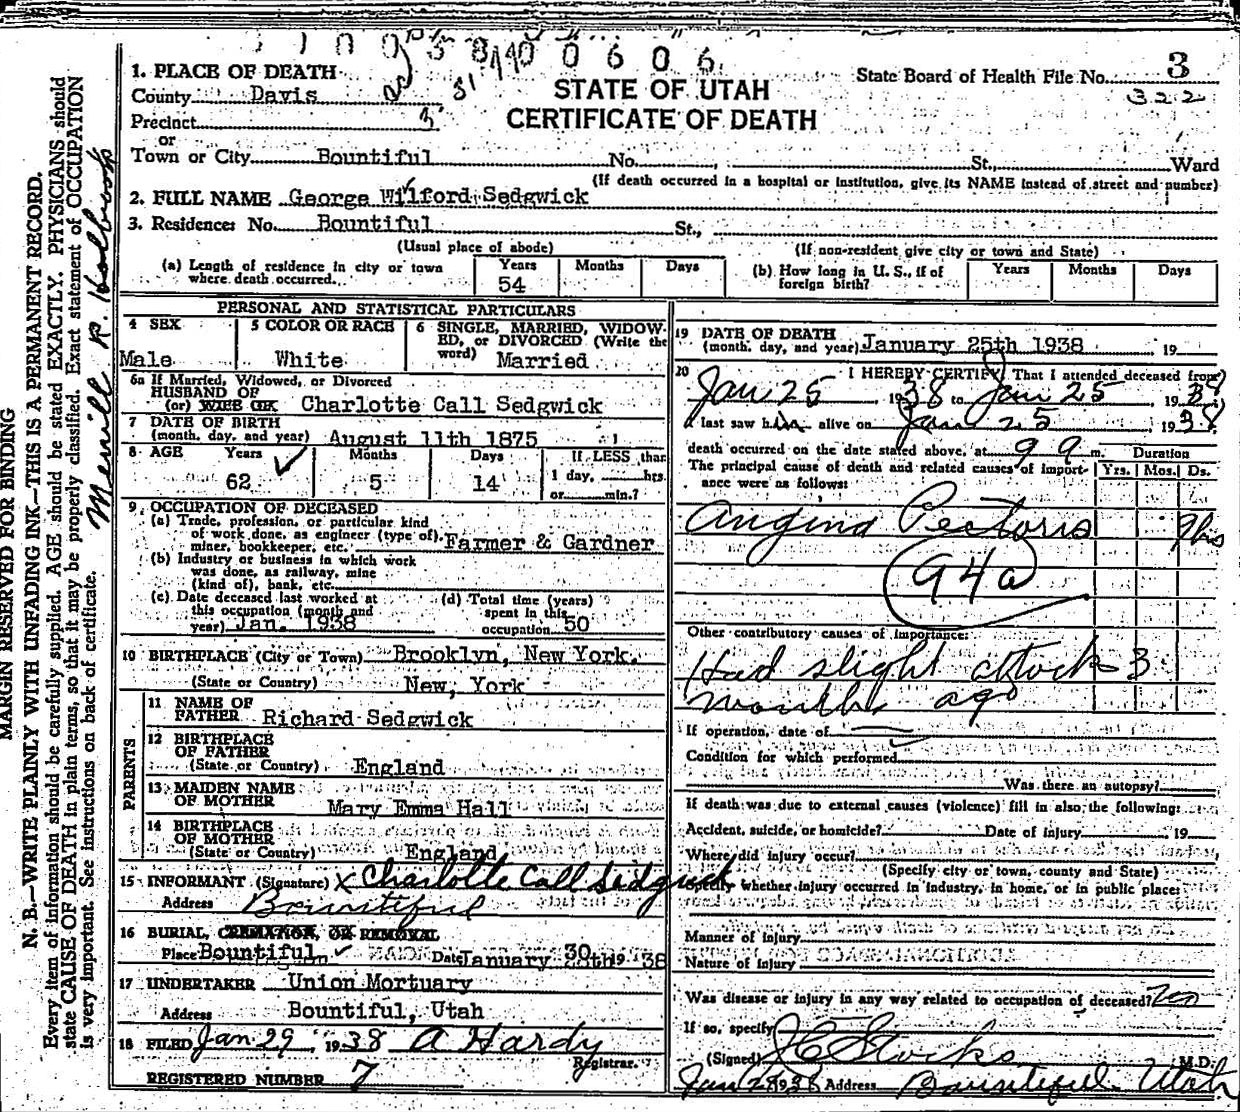 1 0 0 5 8 4 0 0 6 0 6
1. PLACE OF DEATH
County Davis
Precinct 3
or
Town or City Bountiful No. , St., Ward
STATE OF UTAH
CERTIFICATE OF DEATH
State Board of Health File No. 3
322
(If death occurred in a hospital or institution, give its NAME instead of street and number)
2. FULL NAME George Wilford Sedgwick
3. Residence: No. Bountiful St.,
(Usual place of abode) (If non-resident give city or town and State)
(a) Length of residence in city or town where death occurred. Years 54 Months Days
(b) How long in U. S., if of foreign birth? Years Months Days
PERSONAL AND STATISTICAL PARTICULARS
4 SEX Male
5 COLOR OR RACE White
6 SINGLE, MARRIED, WIDOWED, or DIVORCED (Write the word) Married
6a If Married, Widowed, or Divorced
HUSBAND OF
(or) WIFE OF Charlotte Call Sedgwick
7 DATE OF BIRTH
(month, day, and year) August 11th 1875
8 AGE Years 62 Months 5 Days 14 If LESS than 1 day, hrs. or min.?
9. OCCUPATION OF DECEASED
(a) Trade, profession, or particular kind
of work done, as engineer (type of),
miner, bookkeeper, etc. Farmer & Gardner
(b) Industry or business in which work
was done, as railway, mine
(kind of), bank, etc.
(c) Date deceased last worked at
this occupation (month and
year) Jan. 1938
(d) Total time (years)
spent in this
occupation 50
10 BIRTHPLACE (City or Town) Brooklyn, New York.
(State or Country) New York
PARENTS
11 NAME OF
FATHER Richard Sedgwick
12 BIRTHPLACE
OF FATHER
(State or Country) England
13 MAIDEN NAME
OF MOTHER Mary Emma Hall
14 BIRTHPLACE
OF MOTHER
(State or Country) England
15 INFORMANT (Signature) x Charlotte Call Sedgwick
Address Bountiful
16 BURIAL, CREMATION, OR REMOVAL
Place Bountiful Date January 30th 1938
17 UNDERTAKER Union Mortuary
Address Bountiful, Utah
18 FILED Jan 29 1938 A Hardy
Registrar.
REGISTERED NUMBER 7
19 DATE OF DEATH
(month, day, and year) January 25th 1938 19
20 I HEREBY CERTIFY, That I attended deceased from
Jan 25, 1938 to Jan 25 1938
I last saw him alive on Jan 25 1938
death occurred on the date stated above, at 9 9 m. Duration
The principal cause of death and related causes of importance were as follows: Yrs. Mos. Ds.
Angina Pectoris
94a
Other contributory causes of importance:
Had slight attack 3
months ago
If operation, date of
Condition for which performed
Was there an autopsy?
If death was due to external causes (violence) fill in also the following:
Accident, suicide, or homicide? Date of injury 19
Where did injury occur?
(Specify city or town, county and State)
Specify whether injury occurred in industry, in home, or in public place:
Manner of injury
Nature of injury
Was disease or injury in any way related to occupation of deceased?
If so, specify
(Signed) J C Stocks M.D.
Address Bountiful Utah
MARGIN RESERVED FOR BINDING
N. B.—WRITE PLAINLY WITH UNFADING INK—THIS IS A PERMANENT RECORD.
Every item of information should be carefully supplied. AGE should be stated EXACTLY. PHYSICIANS should
state CAUSE OF DEATH in plain terms, so that it may be properly classified. Exact statement of OCCUPATION
is very important. See instructions on back of certificate.
Merrill R. Holbrook